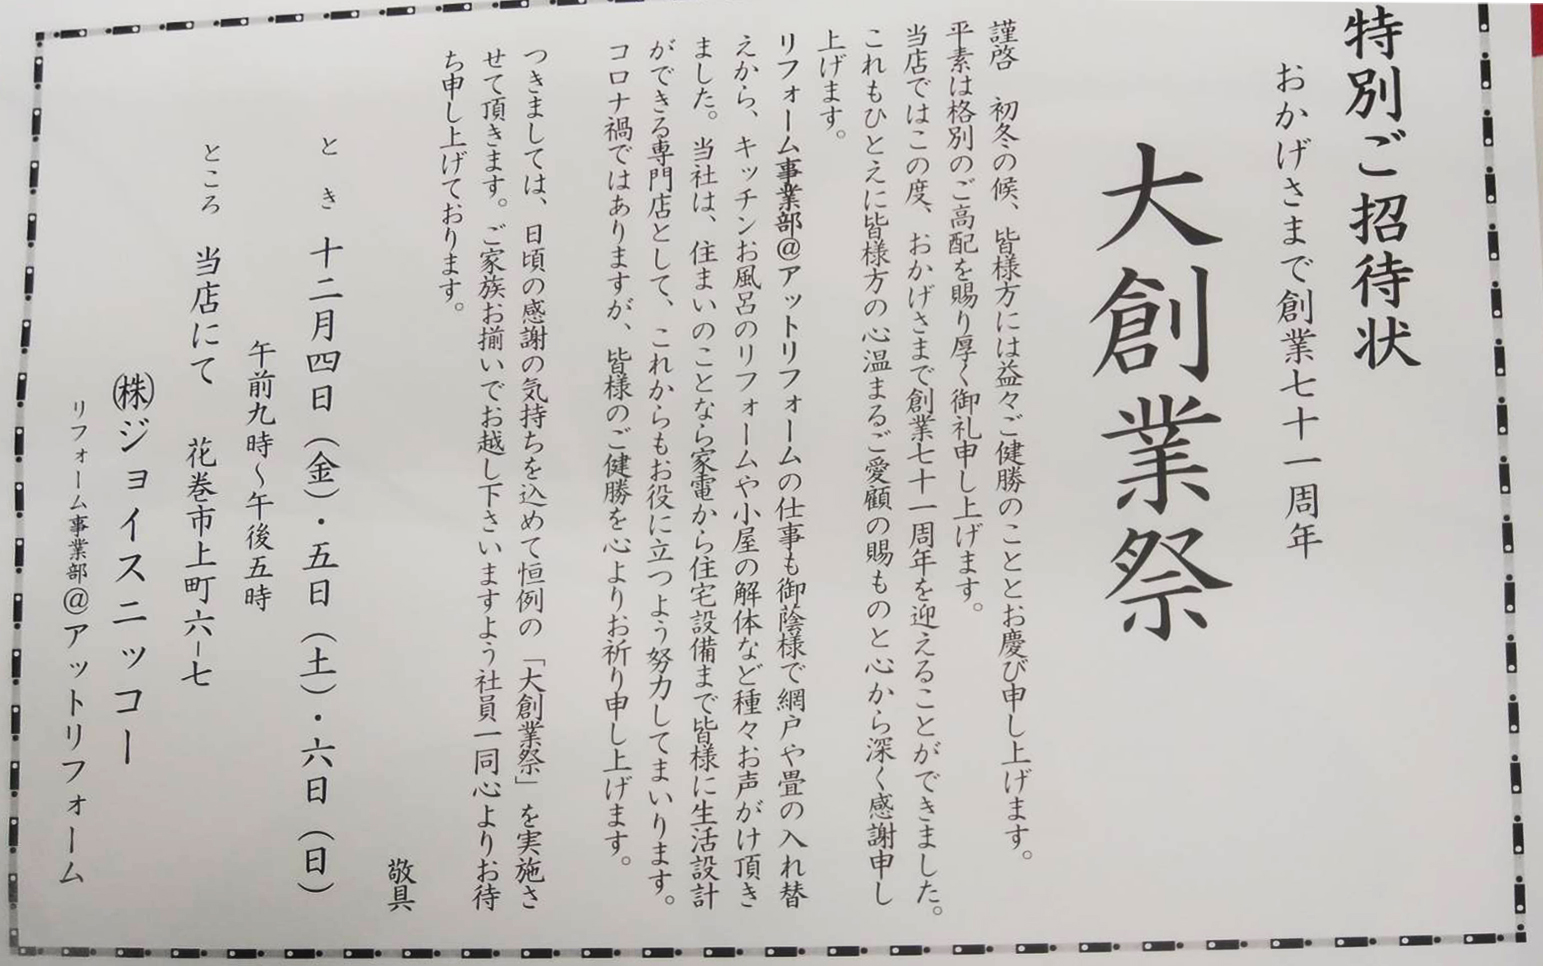 特別ご招待状
おかげさまで創業七十一周年
大創業祭
謹啓　初冬の候、皆様方には益々ご健勝のこととお慶び申し上げます。
平素は格別のご高配を賜り厚く御礼申し上げます。
当店ではこの度、おかげさまで創業七十一周年を迎えることができました。
これもひとえに皆様方の心温まるご愛顧の賜ものと心から深く感謝申し
上げます。
リフォーム事業部@アットリフォームの仕事も御蔭様で網戸や畳の入れ替
えから、キッチンお風呂のリフォームや小屋の解体など種々お声がけ頂き
ました。当社は、住まいのことなら家電から住宅設備まで皆様に生活設計
ができる専門店として、これからもお役に立つよう努力してまいります。
コロナ禍ではありますが、皆様のご健勝を心よりお祈り申し上げます。
つきましては、日頃の感謝の気持ちを込めて恒例の「大創業祭」を実施さ
せて頂きます。ご家族お揃いでお越し下さいますよう社員一同心よりお待
ち申し上げております。
敬具
とき　十二月四日（金）・五日（土）・六日（日）
午前九時～午後五時
ところ　当店にて　花巻市上町六-七
㈱ジョイスニッコー
リフォーム事業部@アットリフォーム